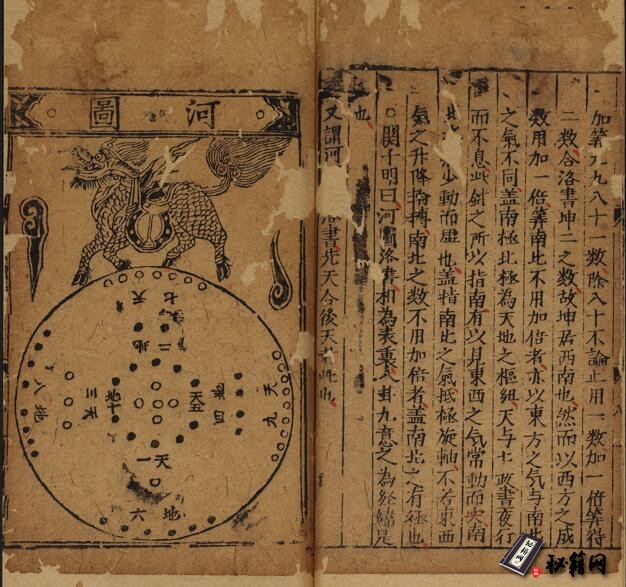 加筭九九八十一數除八十不論止用一數加一倍筭得
二數合洛書坤二之數故坤居西南也然而以西方之成
數用加一倍筭南北不用加倍者亦以東方之气与南北
之氣不同盖南極北極為天地之樞紐天与七政晝夜行
而不息此針之所以指南有以見東西之气常動而实南
北少動而虛也盖指南北之气抵極旋軸不若東西
氣之升降輪轉南北之數不用加倍者盖南北之有極也
○関子明曰河圖洛書相為表裏八卦九章之為経緯是
也
又謂河書先天合後天
河圖
天七
地二
天九
地四
天五
地十
天三
地八
天一
地六
秘籍网